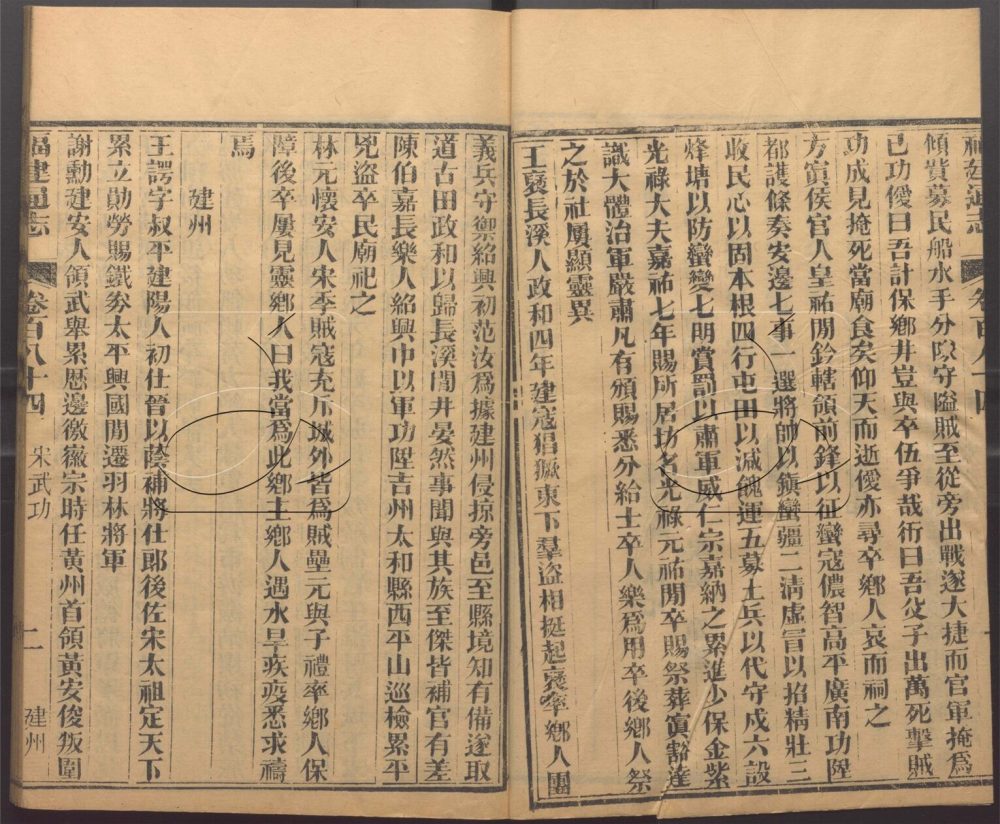 福建通志 卷百八十四
傾貲募民船水手分隊守隘賊至從旁出戰遂大捷而官軍掩爲
已功僾曰吾計保鄉井豈與卒伍爭哉衎曰吾父子出萬死擊賊
功成見掩死當廟食矣仰天而逝僾亦尋卒鄉人哀而祠之
方寘侯官人皇祐閒鈐轄領前鋒以征蠻寇儂智高平廣南功陞
都護條奏安邊七事一選將帥以鎮蠻疆二淸虛冒以招精壯三
收民心以固本根四行屯田以减餽運五募土兵以代守戍六設
烽塘以防蠻變七明賞罰以肅軍威仁宗嘉納之累進少保金紫
光祿大夫嘉祐七年賜所居坊名光祿元祐閒卒賜祭葬寘豁達
識大體治軍嚴肅凡有頒賜悉分給士卒人樂爲用卒後鄉人祭
之於社屢顯靈異
王襃長溪人政和四年建寇猖獗東下羣盜相挺起襃率鄉人團
義兵守禦紹興初范汝爲據建州侵掠旁邑至縣境知有備遂取
道古田政和以歸長溪閭井晏然事聞與其族至傑皆補官有差
陳伯嘉長樂人紹興中以軍功陞吉州太和縣西平山巡檢累平
兇盜卒民廟祀之
林元懷安人宋季賊寇充斥城外皆爲賊壘元與子禮率鄉人保
障後卒屢見靈鄉人曰我當爲此鄉主鄉人遇水旱疾疫悉求禱
焉
建州
王諤字叔平建陽人初仕晉以蔭補將仕郎後佐宋太祖定天下
累立勛勞賜鐵劵太平興國閒遷羽林將軍
謝勳建安人領武舉累歷邊徼徽宗時任黃州首領黃安俊叛圍
福建通志 卷百八十四 宋武功 二 建州